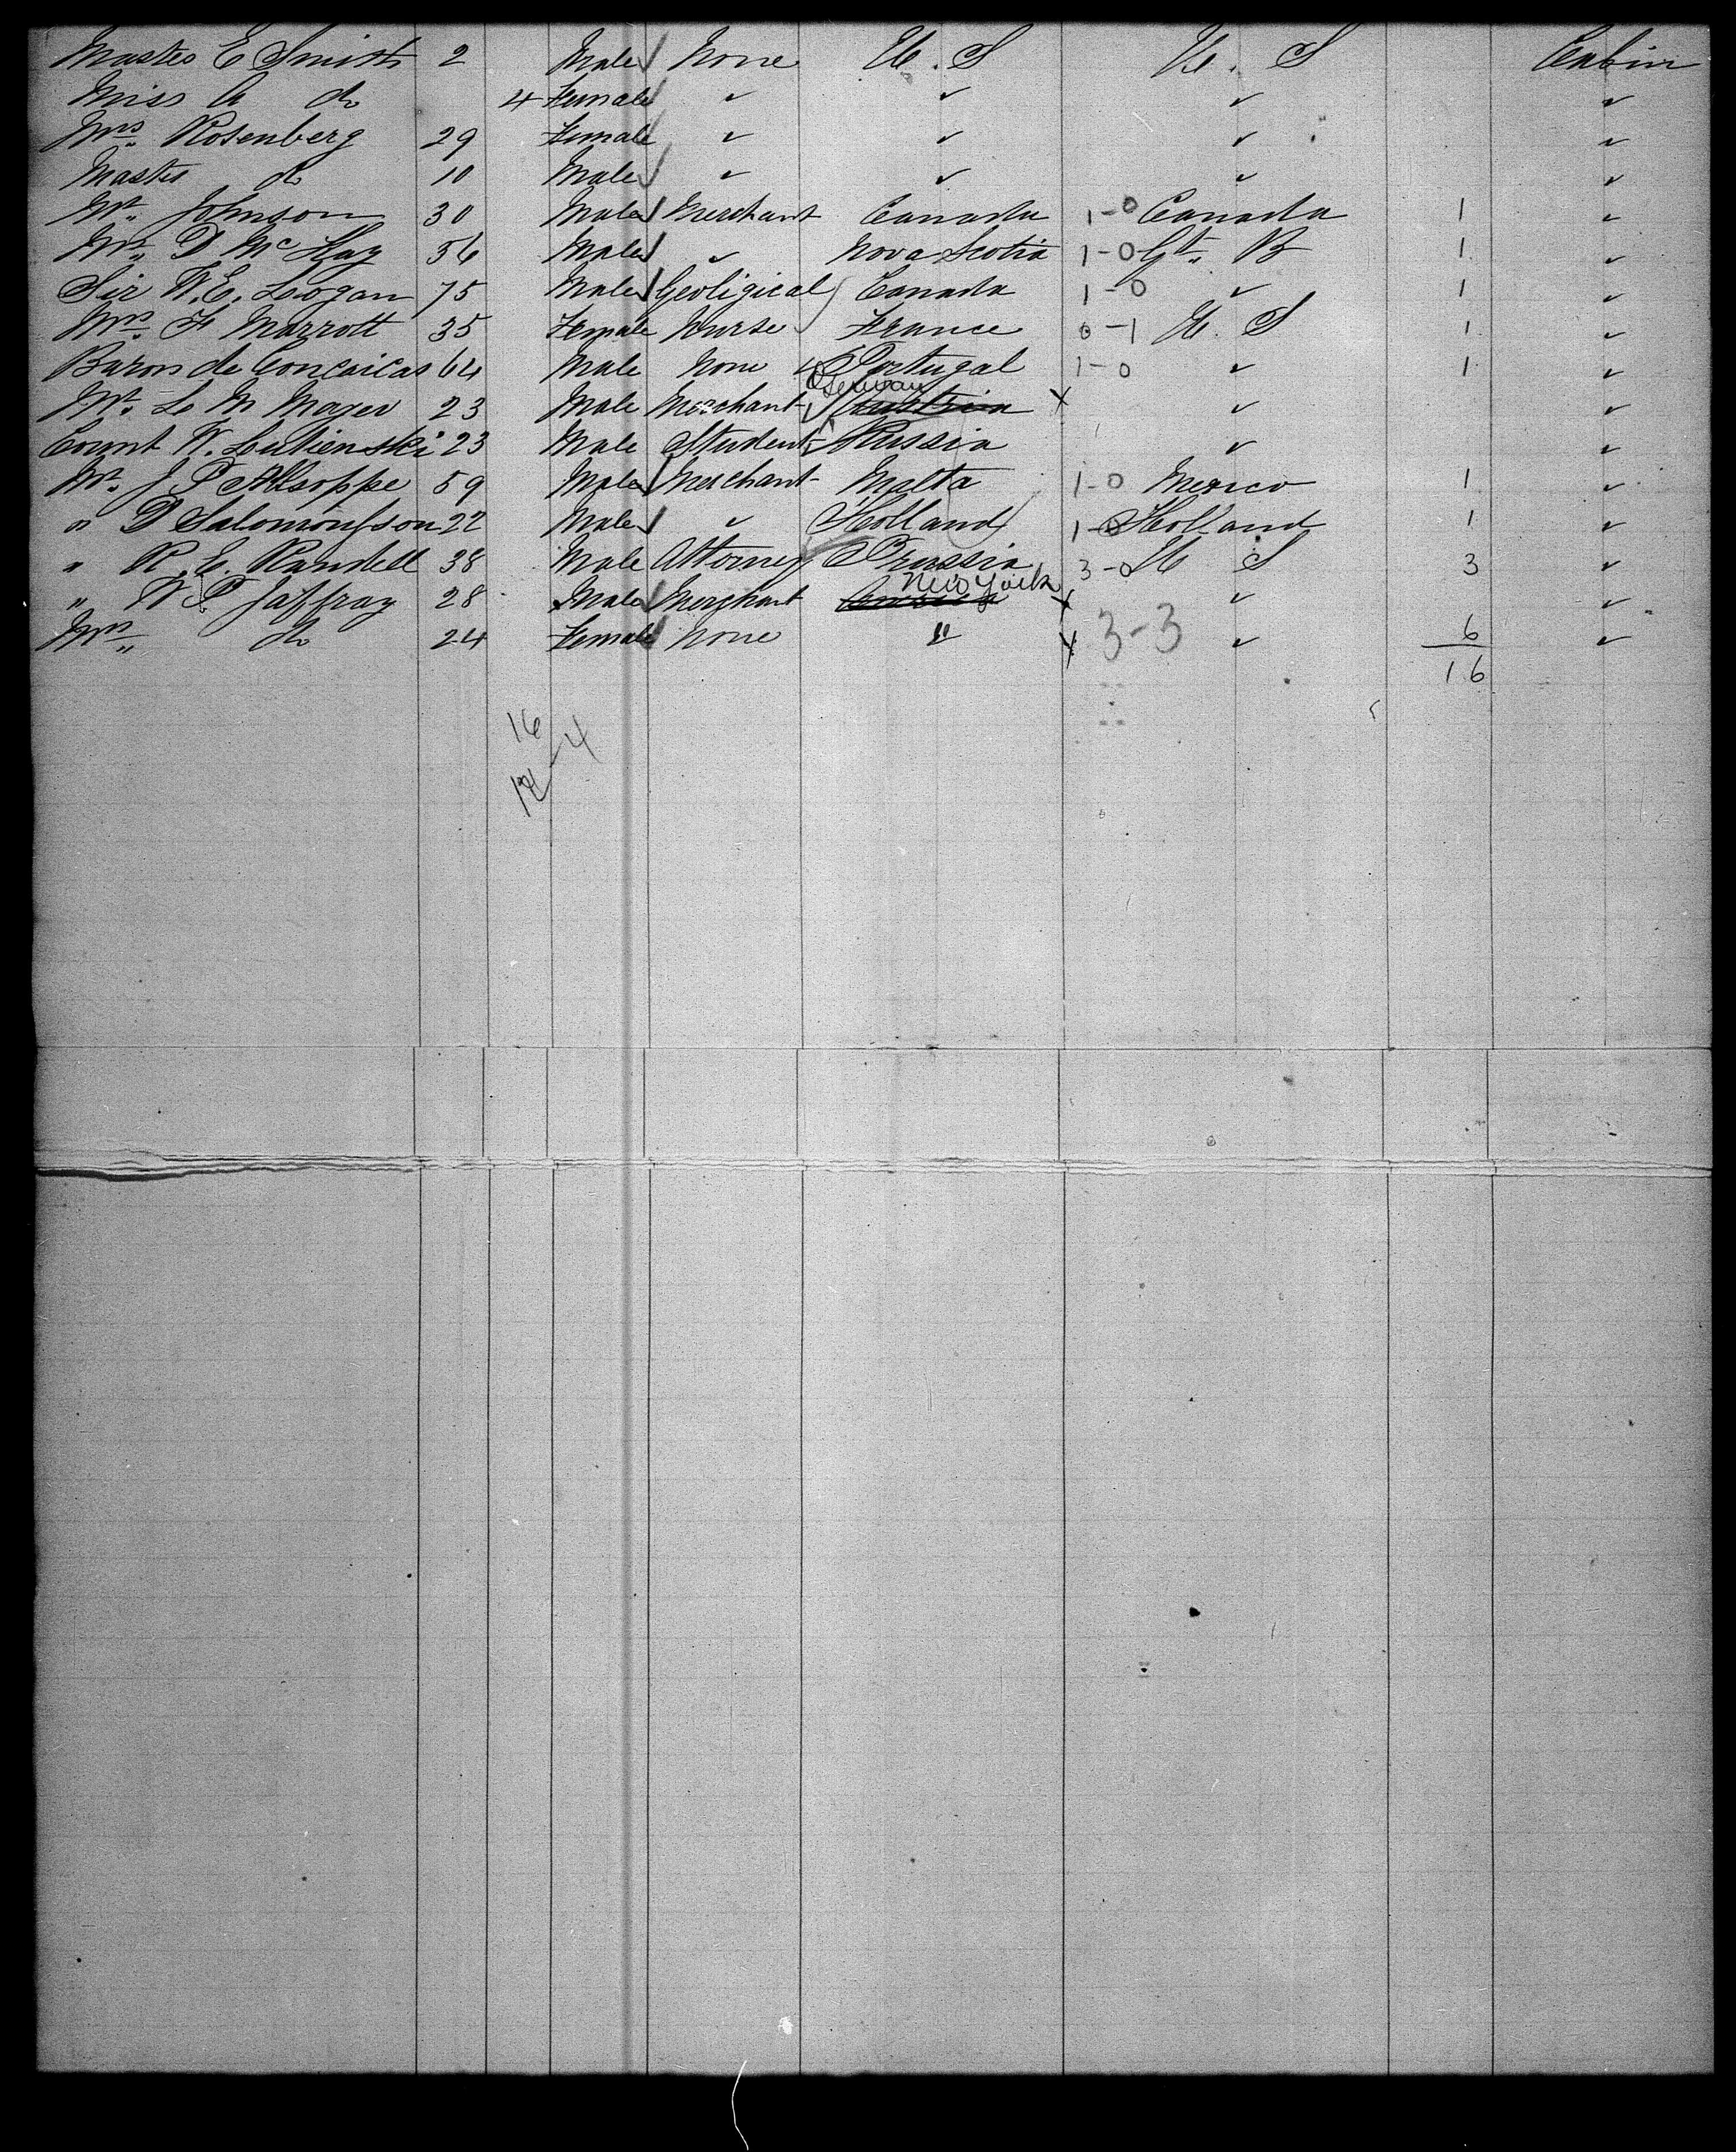 Master E Smith 2 Male None U. S U. S Cabin
Miss A do 4 Female ✓ ✓ ✓ ✓
Mrs. Rosenberg 29 Female ✓ ✓ ✓ ✓
Master do 10 Male ✓ ✓ ✓ ✓
Mr. Johnson 30 Male Merchant Canada 1-0 Canada 1 ✓
Mr. D McKay 56 Male ✓ Nova Scotia 1-0 Gt. B 1 ✓
Sir W. E. Logan 75 Male Geoligical Canada 1-0 ✓ 1 ✓
Mrs. F Marrott 35 Female Nurse France 0-1 U. S 1 ✓
Baron de 64 Male None Portugal 1-0 ✓ 1 ✓
Germany
Mr. L M Mayer 23 Male Merchant Austria X ✓ ✓
Count W. 23 Male Student Russia ✓ ✓
Mr. J P Allsoppe 59 Male Merchant Malta 1-0 Mexico 1 ✓
" D Salomonson 22 Male ✓ Holland 1-0 Holland 1 ✓
" R. E. Randell 38 Male Attorney Prussia 3-0 U S 3 ✓
New York
" W P Jaffray 28 Male Merchant X ✓ ✓
Mrs. do 24 Female None " X 3-3 ✓ 6 ✓
16
16
4